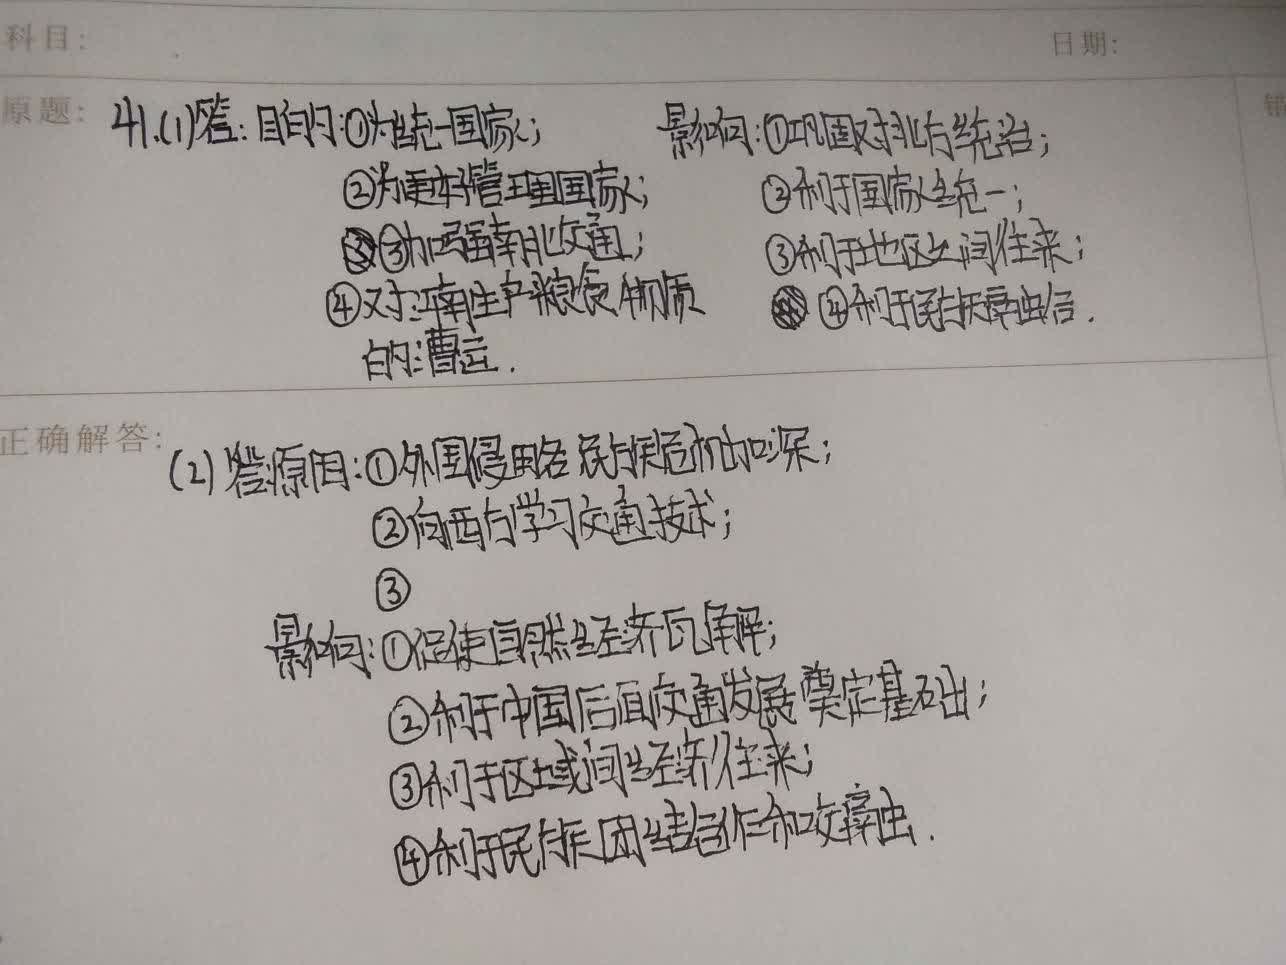 科目:
日期:
原题:
错
41.(1)答:目的:①为统一国家;
②为更好管理国家;
③加强南北交通;
④对江南生产粮食物质
的漕运.
影响:①巩固对北方统治;
②利于国家统一;
③利于地区之间往来;
④利于民族融合.
正确解答:
(2)答:原因:①外国侵略民族危机加深;
②向西方学习交通技术;
③
影响:①促使自然经济瓦解;
②利于中国后面交通发展奠定基础;
③利于区域间经济往来;
④利于民族团结合作和交融.